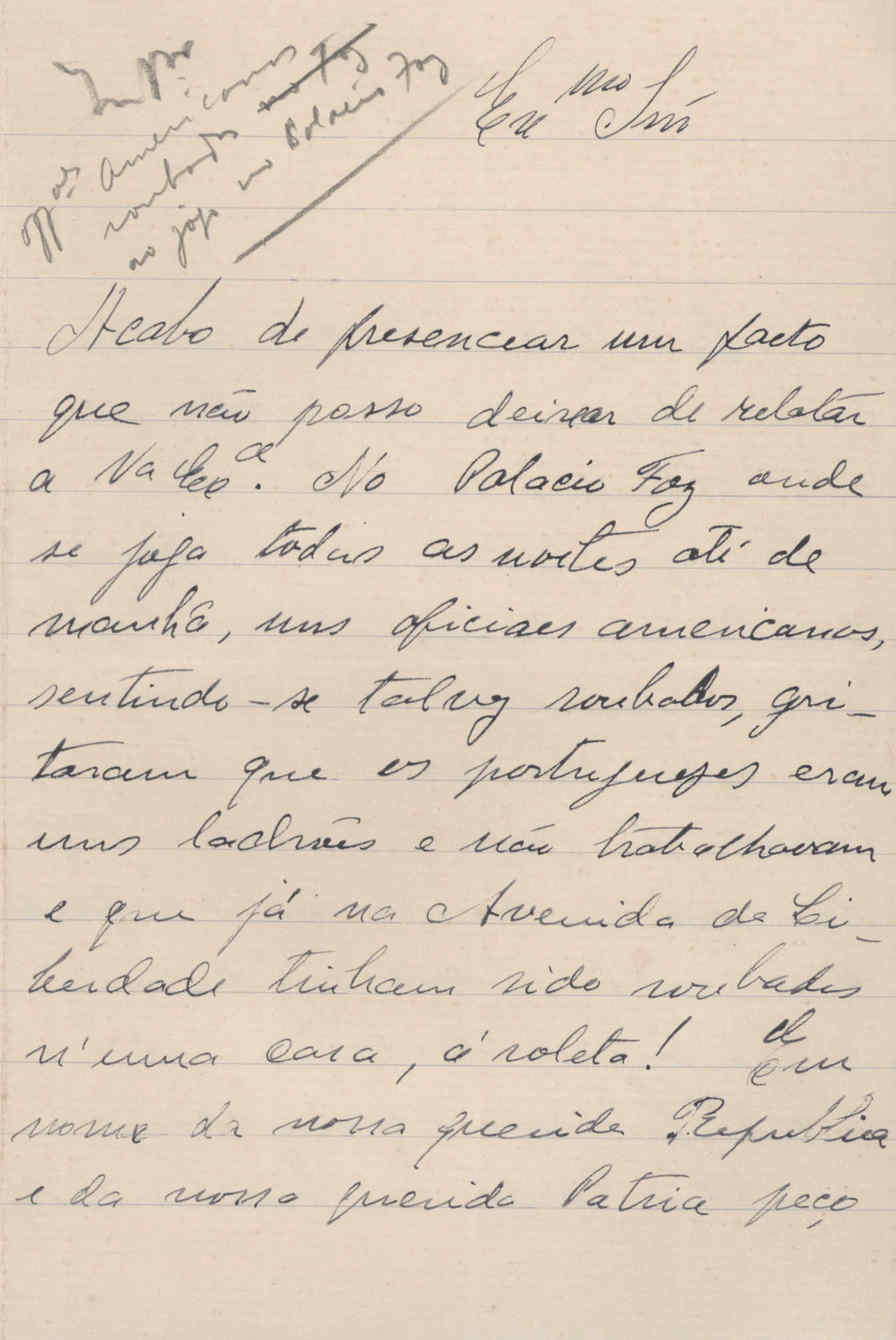 offes americanos
roubados no Foz
ao jogo no Palacio Foz
Exmo Snr
Acabo de presencear um facto
que não posso deixar de relatár
a Va Exca. No Palacio Foz onde
se joga todas as noites até de
manhã, uns oficiaes americanos,
sentindo-se talvez roubados, gri-
taram que os portuguezes eram
uns ladrões e não trabalhavam
e que já na Avenida da Li-
berdade tinham sido roubados
n'uma casa, á roleta! Em
nome da nossa querida Republica
e da nossa querida Patria peço